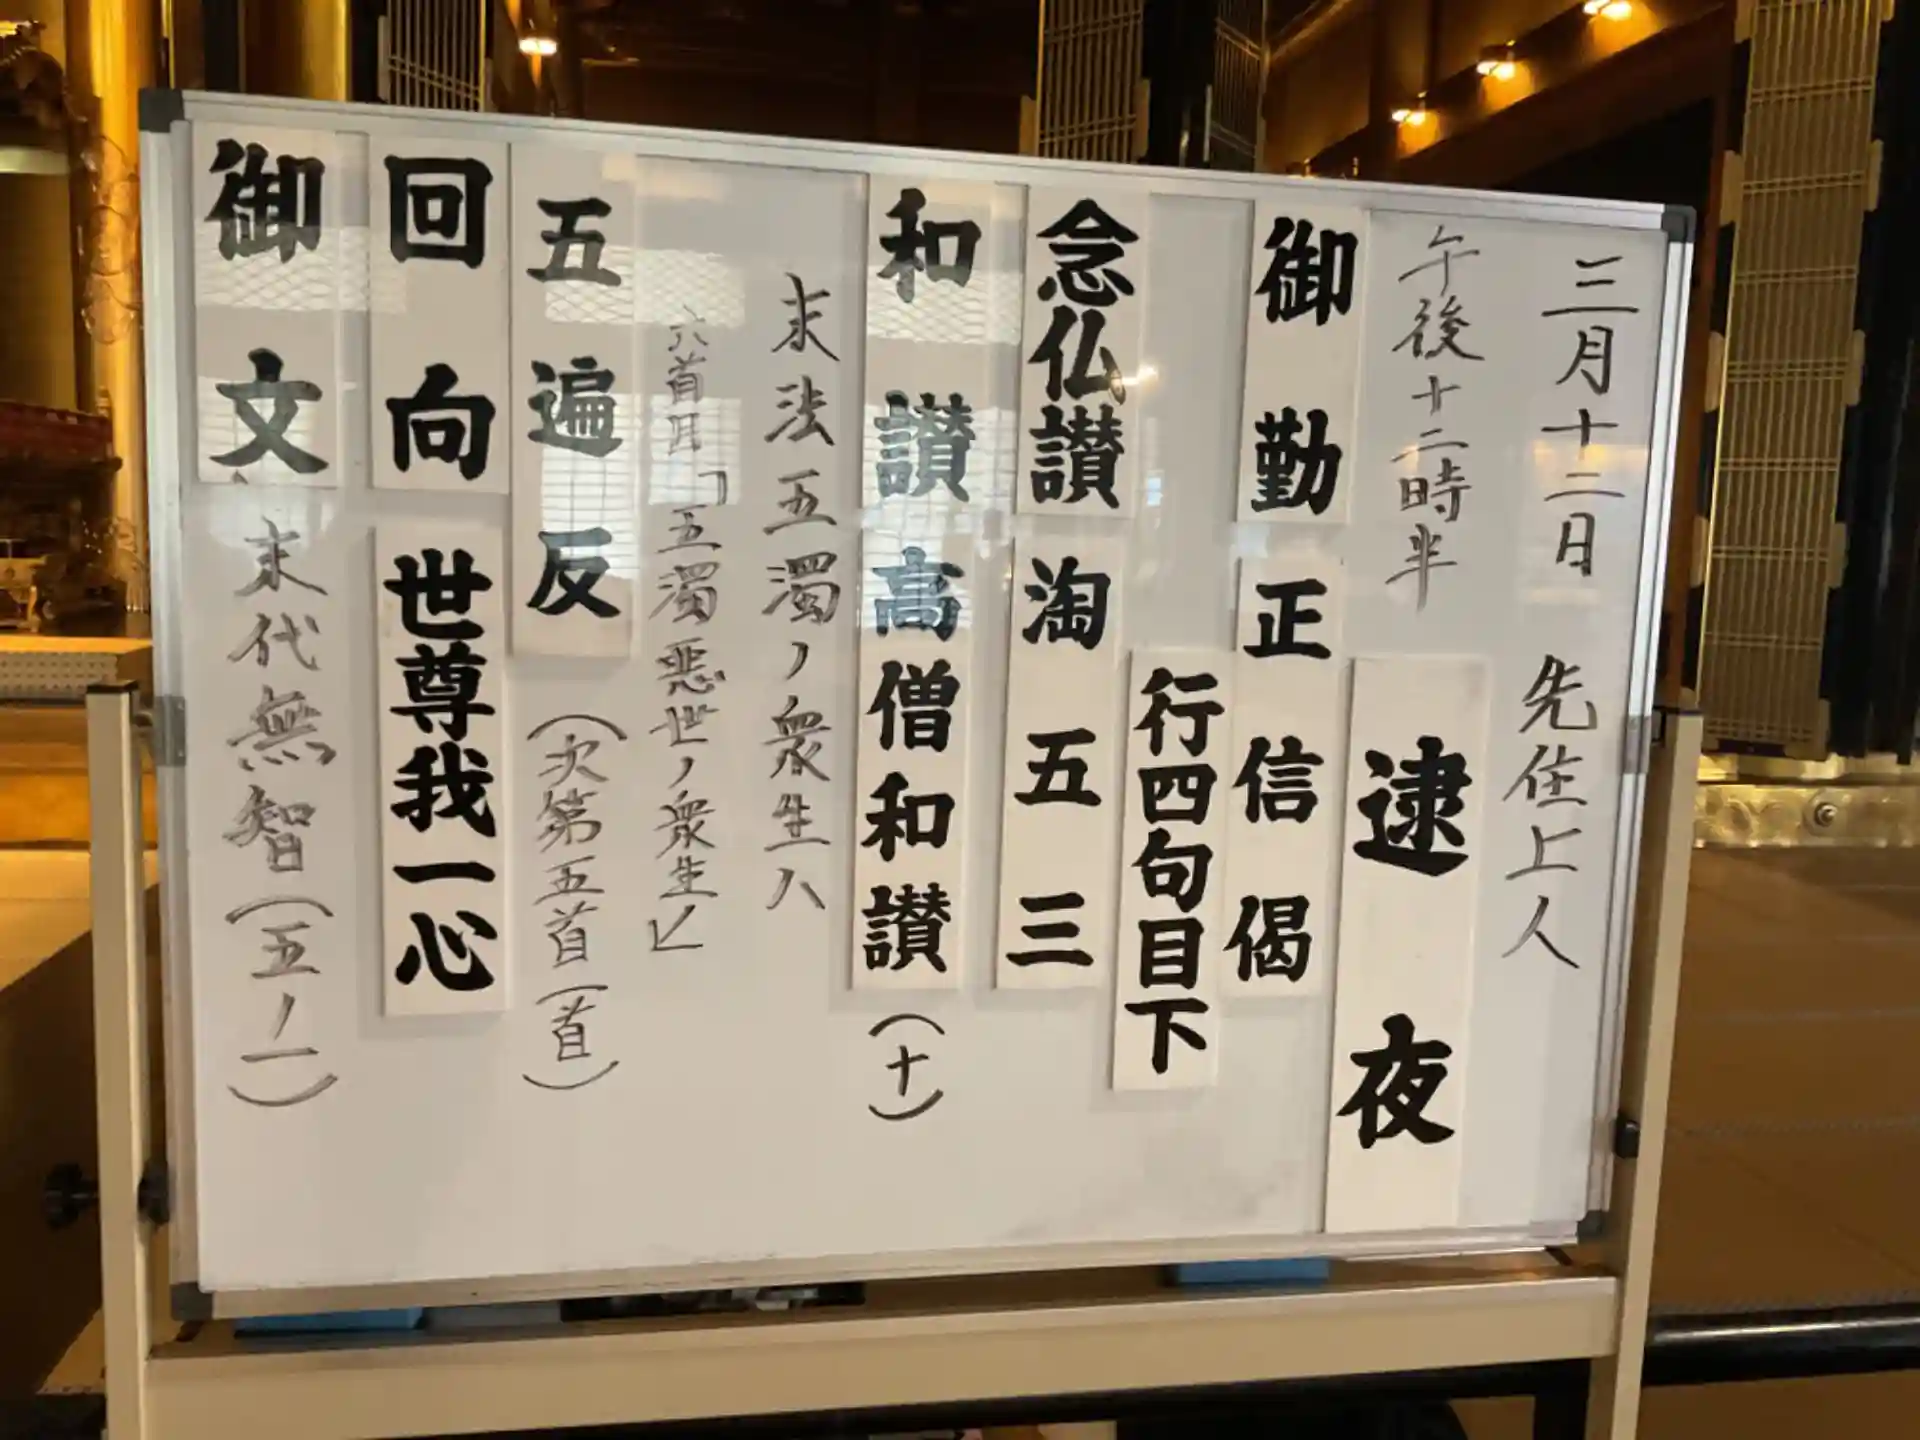 三月十二日 先住上人
午後十二時半 逮夜
御勤 正信偈
行四句目下
念仏讃 淘五三
和讃 高僧和讃(十)
末法五濁ノ衆生ハ
六首目「五濁悪世ノ衆生」
五遍反(次第五首(首)
回向 世尊我一心
御文 末代無智(五ノ一)